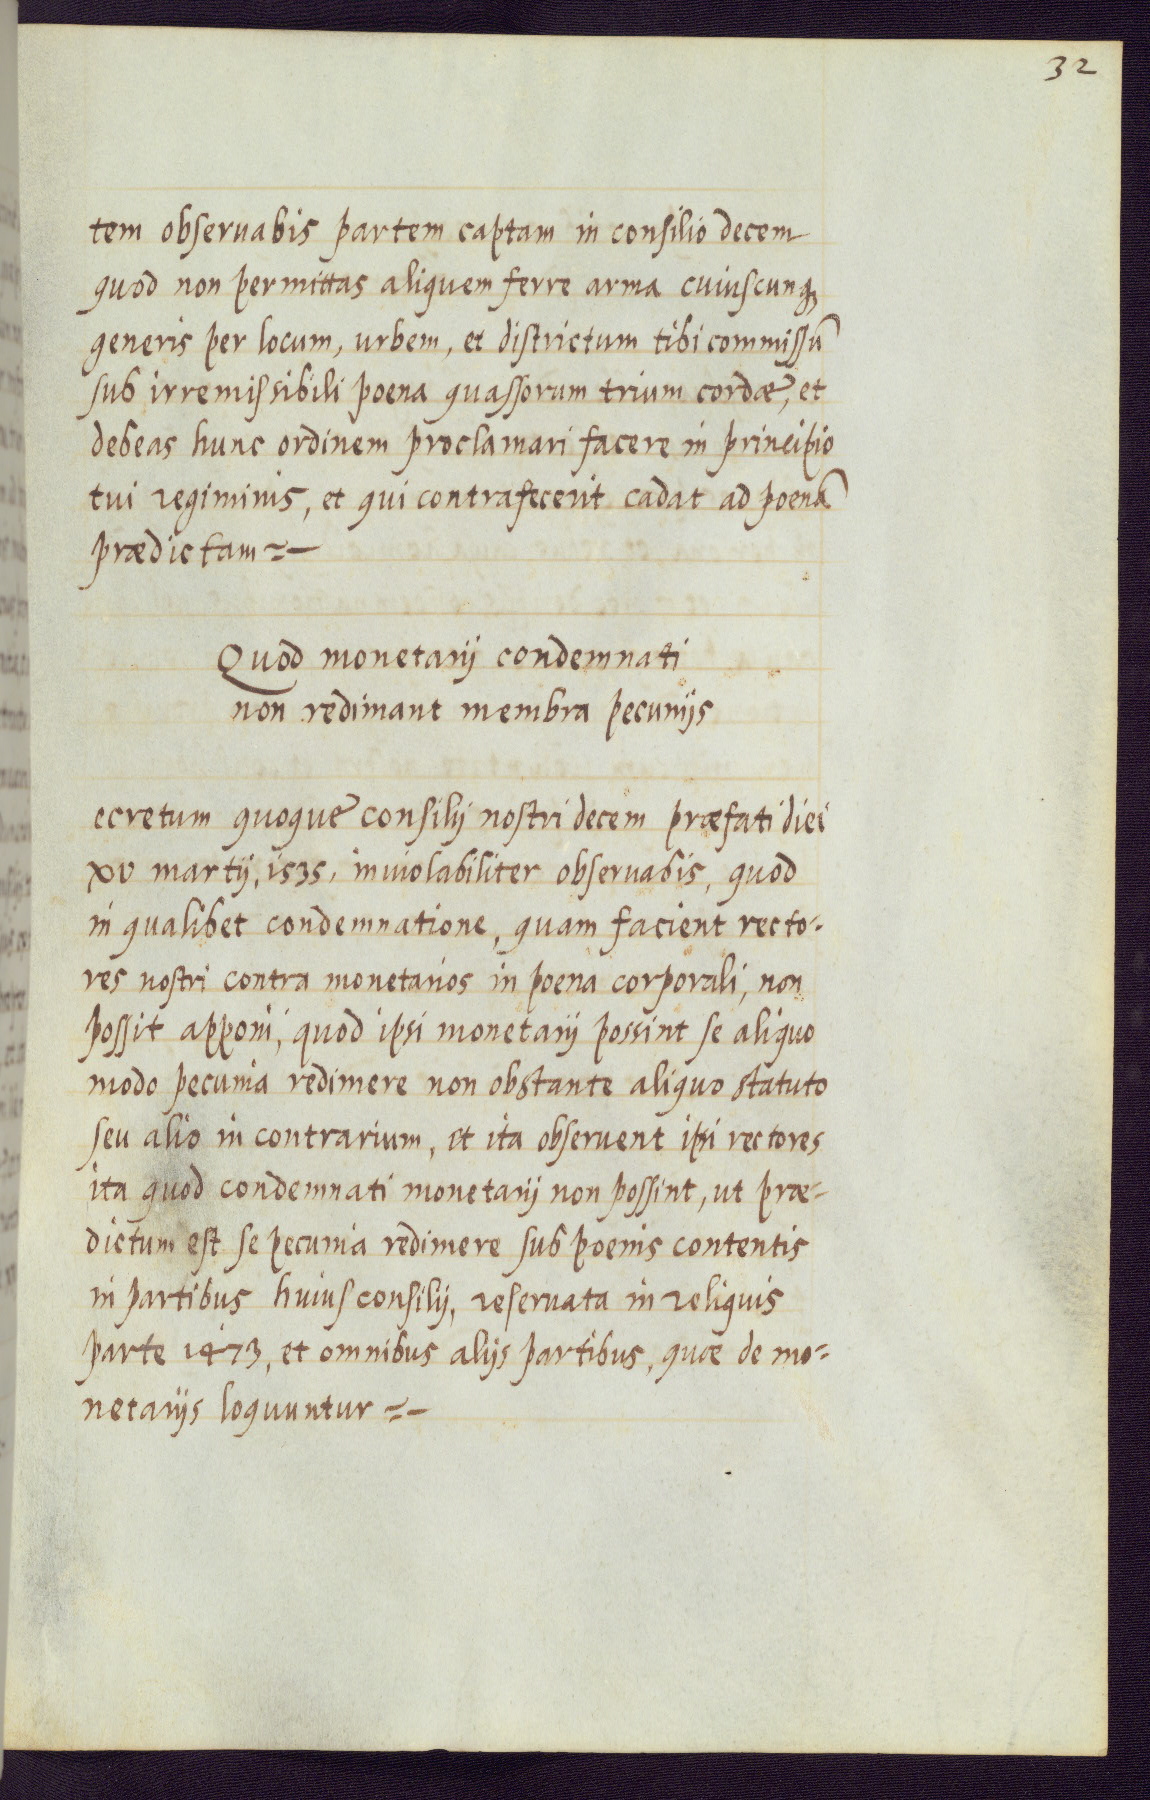 32
tem obseruabis partem captam in consilio decem
quod non permittas aliquem ferre arma cuiuscunq;
generis per locum, urbem, et districtum tibi commissũ
sub irremissibili poena quassorum trium cordæ, et
debeas hunc ordinem proclamari facere in principio
tui regiminis, et qui contrafecerit cadat ad poenã
prædictam =-
Quod monetarij condemnati
non redimant membra pecunijs
ecretum quoque consilij nostri decem præfati diei
xv martij, 1535, inuiolabiliter obseruabis, quod
in qualibet condemnatione, quam facient recto-
res nostri contra monetarios in poena corporali, non
possit apponi, quod ipsi monetarij possint se aliquo
modo pecunia redimere non obstante aliquo statuto
seu alio in contrarium, et ita obseruent ipsi rectores
ita quod condemnati monetarij non possint, ut præ-
dictum est se pecunia redimere sub poenis contentis
in partibus huius consilij, reseruata in reliquis
parte 1473, et omnibus alijs partibus, quæ de mo-
netarijs loquuntur =-